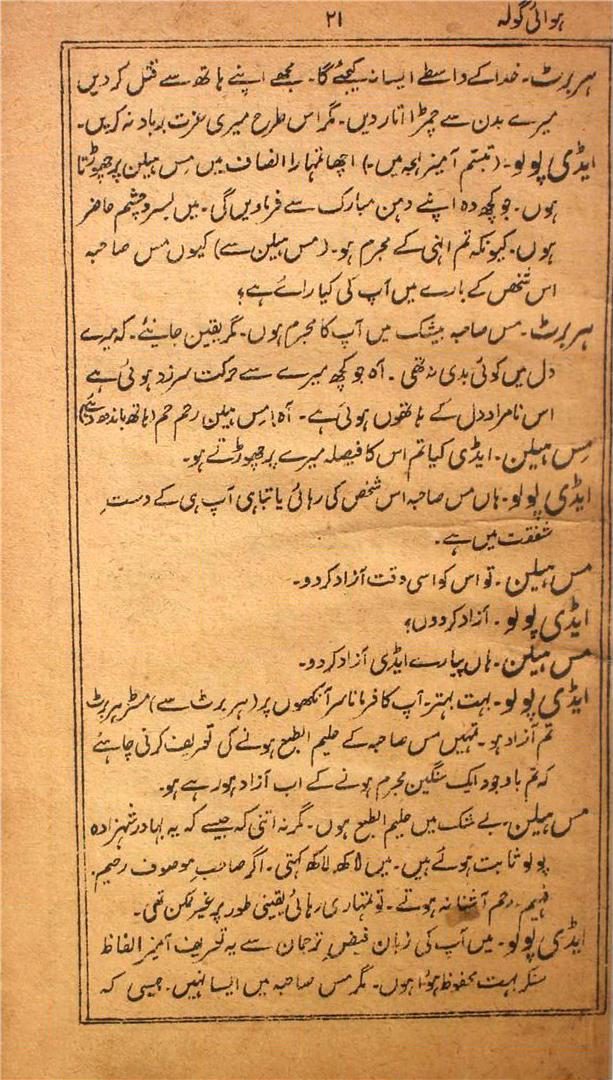 ہوائی گولہ
۲۱
ہربرٹ۔ خدا کے واسطے ایسا نہ کیجئے گا۔ مجھے اپنے ہاتھ سے قتل کر دیں
میرے بدن سے چمڑا اتار دیں۔ مگر اس طرح میری عزت برباد نہ کریں۔
ایڈی پولو۔ (تبسم آمیز لہجہ میں۔) اچھا تمہارا انصاف میں مس ہیلن پر چھوڑتا
ہوں۔ جو کچھ وہ اپنے دہن مبارک سے فرماویں گی۔ میں بسر و چشم حاضر
ہوں۔ کیونکہ تم انہی کے مجرم ہو۔ (مس ہیلن سے) کیوں مس صاحبہ
اس شخص کے بارے میں آپ کی کیا رائے ہے؟
ہربرٹ۔ مس صاحبہ بیشک میں آپ کا مجرم ہوں۔ مگر یقین جانیئے۔ کہ میرے
دل میں کوئی بدی نہ تھی۔ آہ جو کچھ میرے سے حرکت سرزد ہوئی ہے
اس نامراد دل کے ہاتھوں ہوئی ہے۔ آہ! مس ہیلن رحم رحم (ہاتھ باندھ دیئے)
مس ہیلن۔ ایڈی کیا تم اس کا فیصلہ میرے پر چھوڑتے ہو۔
ایڈی پولو۔ ہاں مس صاحبہ اس شخص کی رہائی یا تباہی آپ ہی کے دستِ
شفقت میں ہے۔
مس ہیلن۔ تو اس کو اسی وقت آزاد کر دو۔
ایڈی پولو۔ آزاد کر دوں؟
مس ہیلن۔ ہاں پیارے ایڈی آزاد کر دو۔
ایڈی پولو۔ بہت بہتر۔ آپ کا فرمانا سر آنکھوں پر (ہربرٹ سے) مسٹر ہربرٹ
تم آزاد ہو۔ تمہیں مس صاحبہ کے حلیم الطبع ہونے کی تعریف کرنی چاہئے
کہ تم باوجود ایک سنگین مجرم ہونے کے اب آزاد ہو رہے ہو۔
مس ہیلن۔ بے شک میں حلیم الطبع ہوں۔ مگر نہ اتنی کہ جیسے کہ یہ بہادر شہزادہ
پولو ثابت ہوئے ہیں۔ میں لاکھ لاکھ کہتی۔ اگر صاحب موصوف رحیم۔
فہیم۔ رحم آشنا نہ ہوتے۔ تو تمہاری رہائی یقینی طور پر غیر ممکن تھی۔
ایڈی پولو۔ میں آپ کی زبان فیض ترجمان سے یہ تعریف آمیز الفاظ
سنکر بہت محفوظ ہوا ہوں۔ مگر مس صاحبہ میں ایسا نہیں۔ جیسی کہ